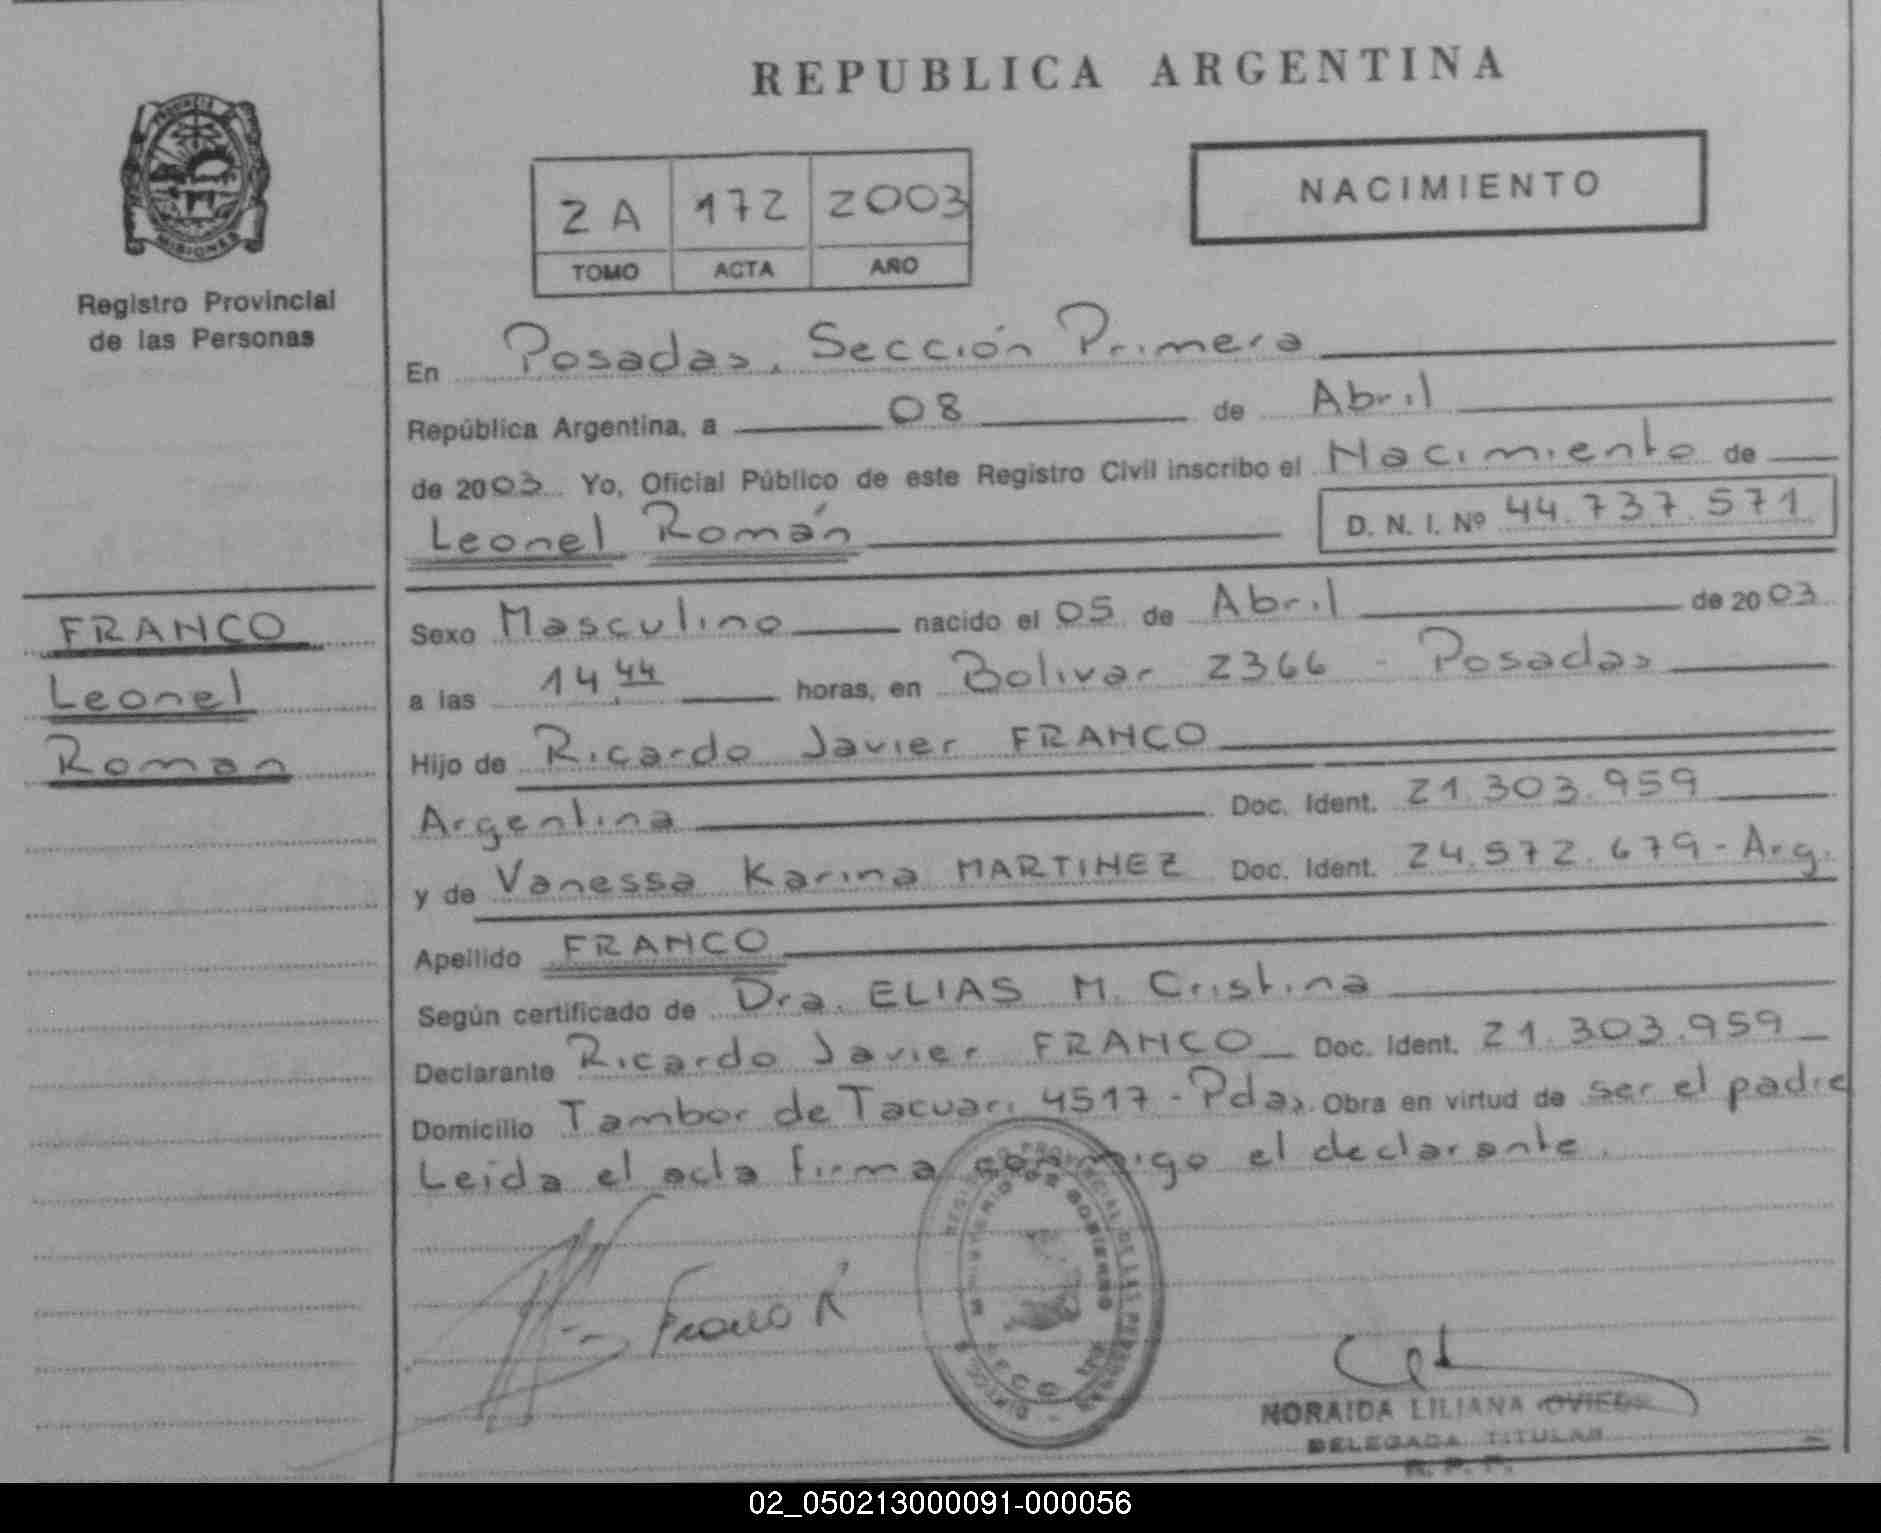 REPUBLICA ARGENTINA
PROVINCIA
MISIONES
Registro Provincial
de las Personas
2 A 172 2003
TOMO ACTA AÑO
NACIMIENTO
En Posadas, Sección Primera
República Argentina, a 08 de Abril
de 2003 Yo, Oficial Público de este Registro Civil inscribo el Nacimiento de
Leonel Román D. N. I. Nº 44.737.571
FRANCO
Leonel
Roman
Sexo Masculino nacido el 05 de Abril de 2003
a las 14 44 horas, en Bolivar 2366 - Posadas
Hijo de Ricardo Javier FRANCO
Argentina Doc. Ident. 21.303.959
y de Vanessa Karina MARTINEZ Doc. Ident. 24.572.679 - Arg.
Apellido FRANCO
Según certificado de Dra. ELIAS M. Cristina
Declarante Ricardo Javier FRANCO Doc. Ident. 21.303.959
Domicilio Tambor de Tacuari 4517 - Pdas. Obra en virtud de ser el padre
Leída el acta firma conmigo el declarante.
Franco R
NORAIDA LILIANA OVIEDO
DELEGADA TITULAR
R. P. P.
02_050213000091-000056